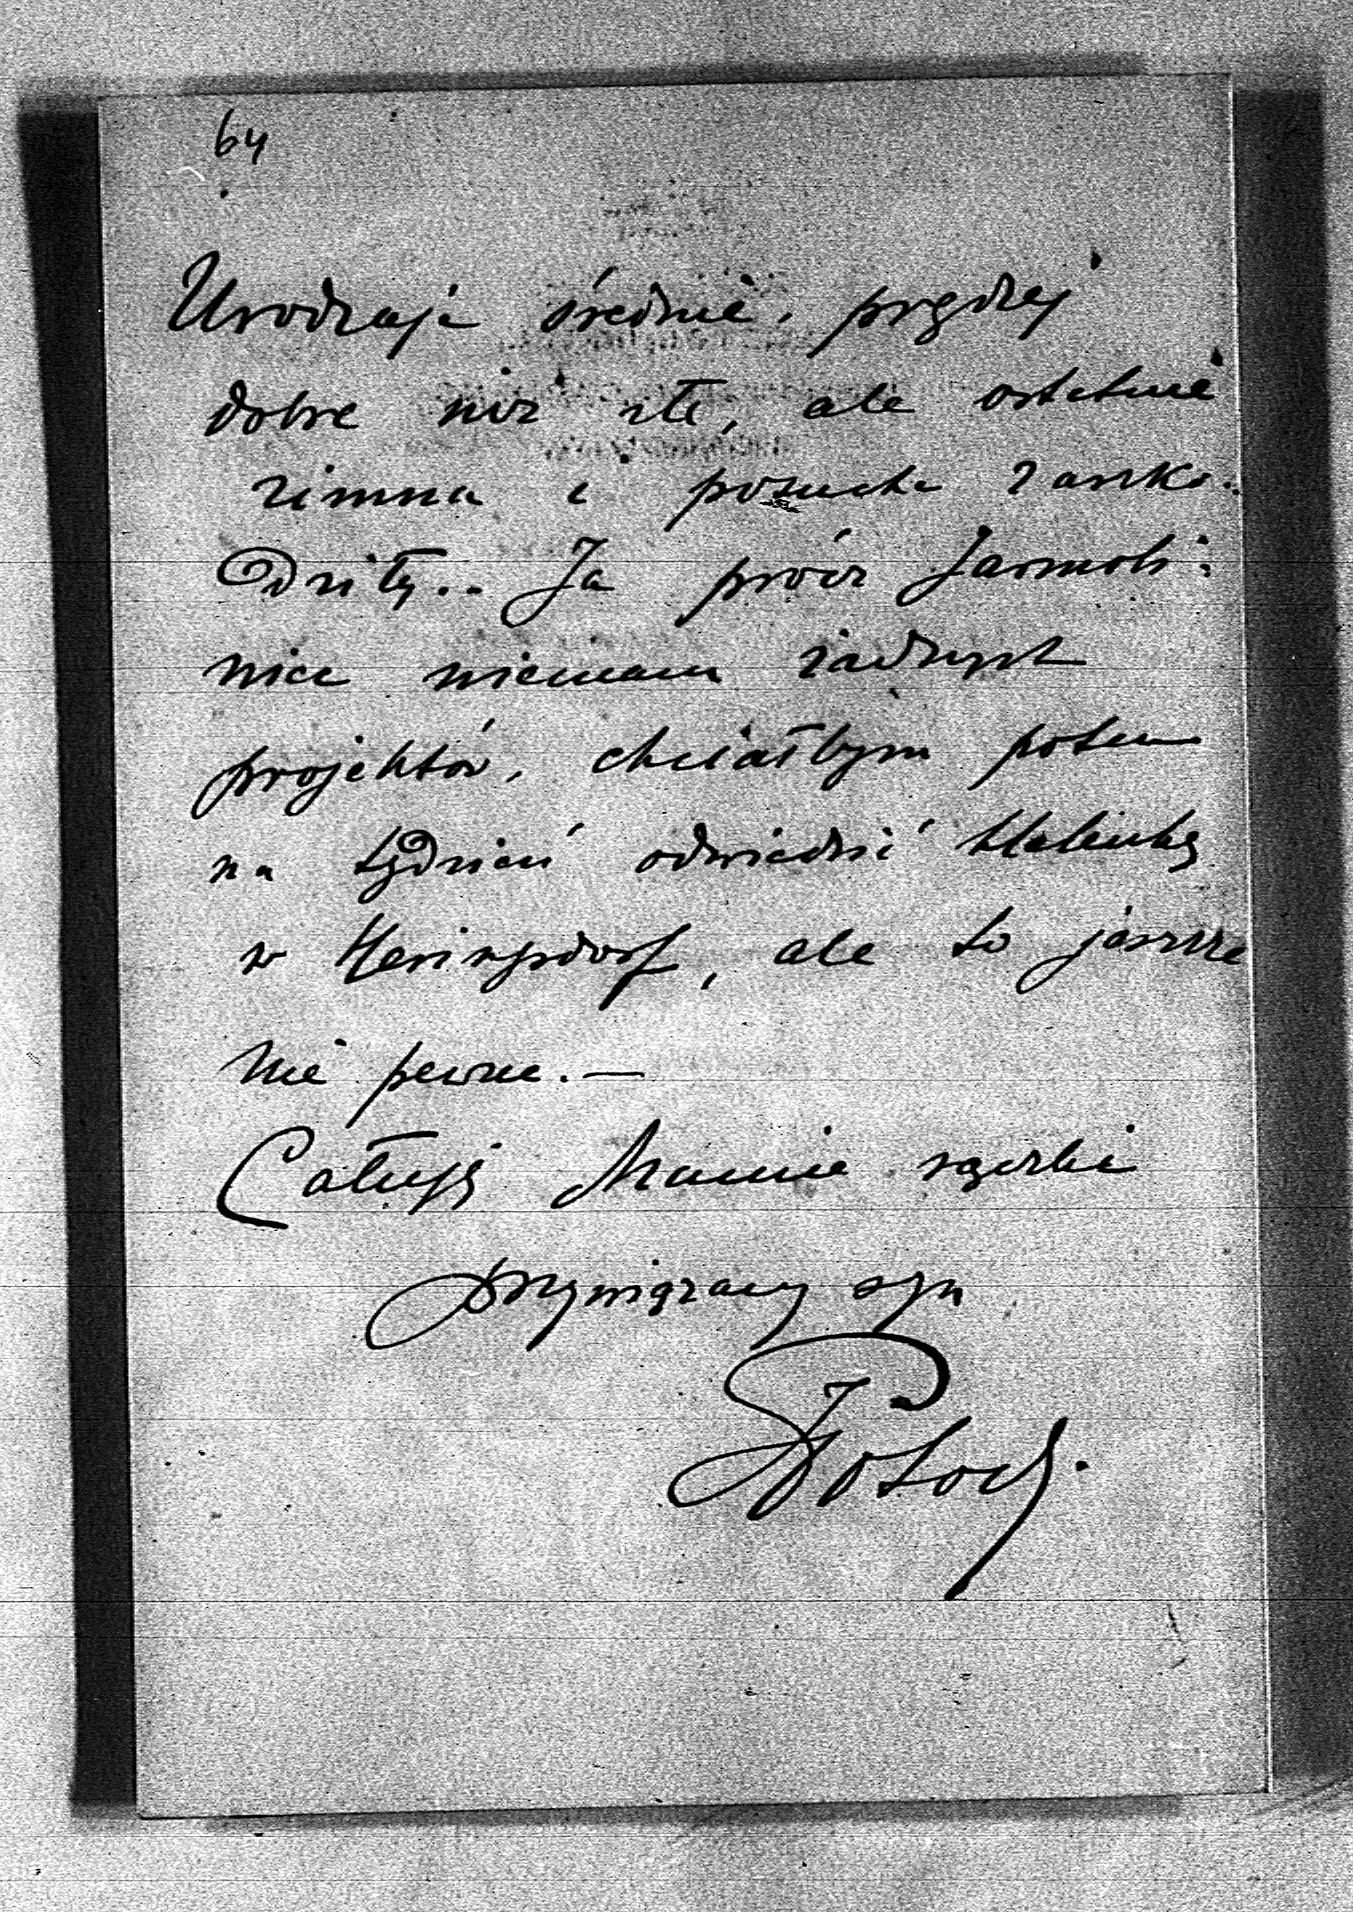 64
Urodzaje średnie, prędzej
dobre niż złe, ale ostatnie
zimna i posucha zaszko-
dziły.. Ja prócz Jarmoli-
niec niemam żadnych
projektów, chciałbym potem
na tydzień odwiedzić Helenkę
w Heringsdorf, ale to jeszcze
nie pewne.—
Całuję Mamie rączki
przywiązany syn
JPotocki